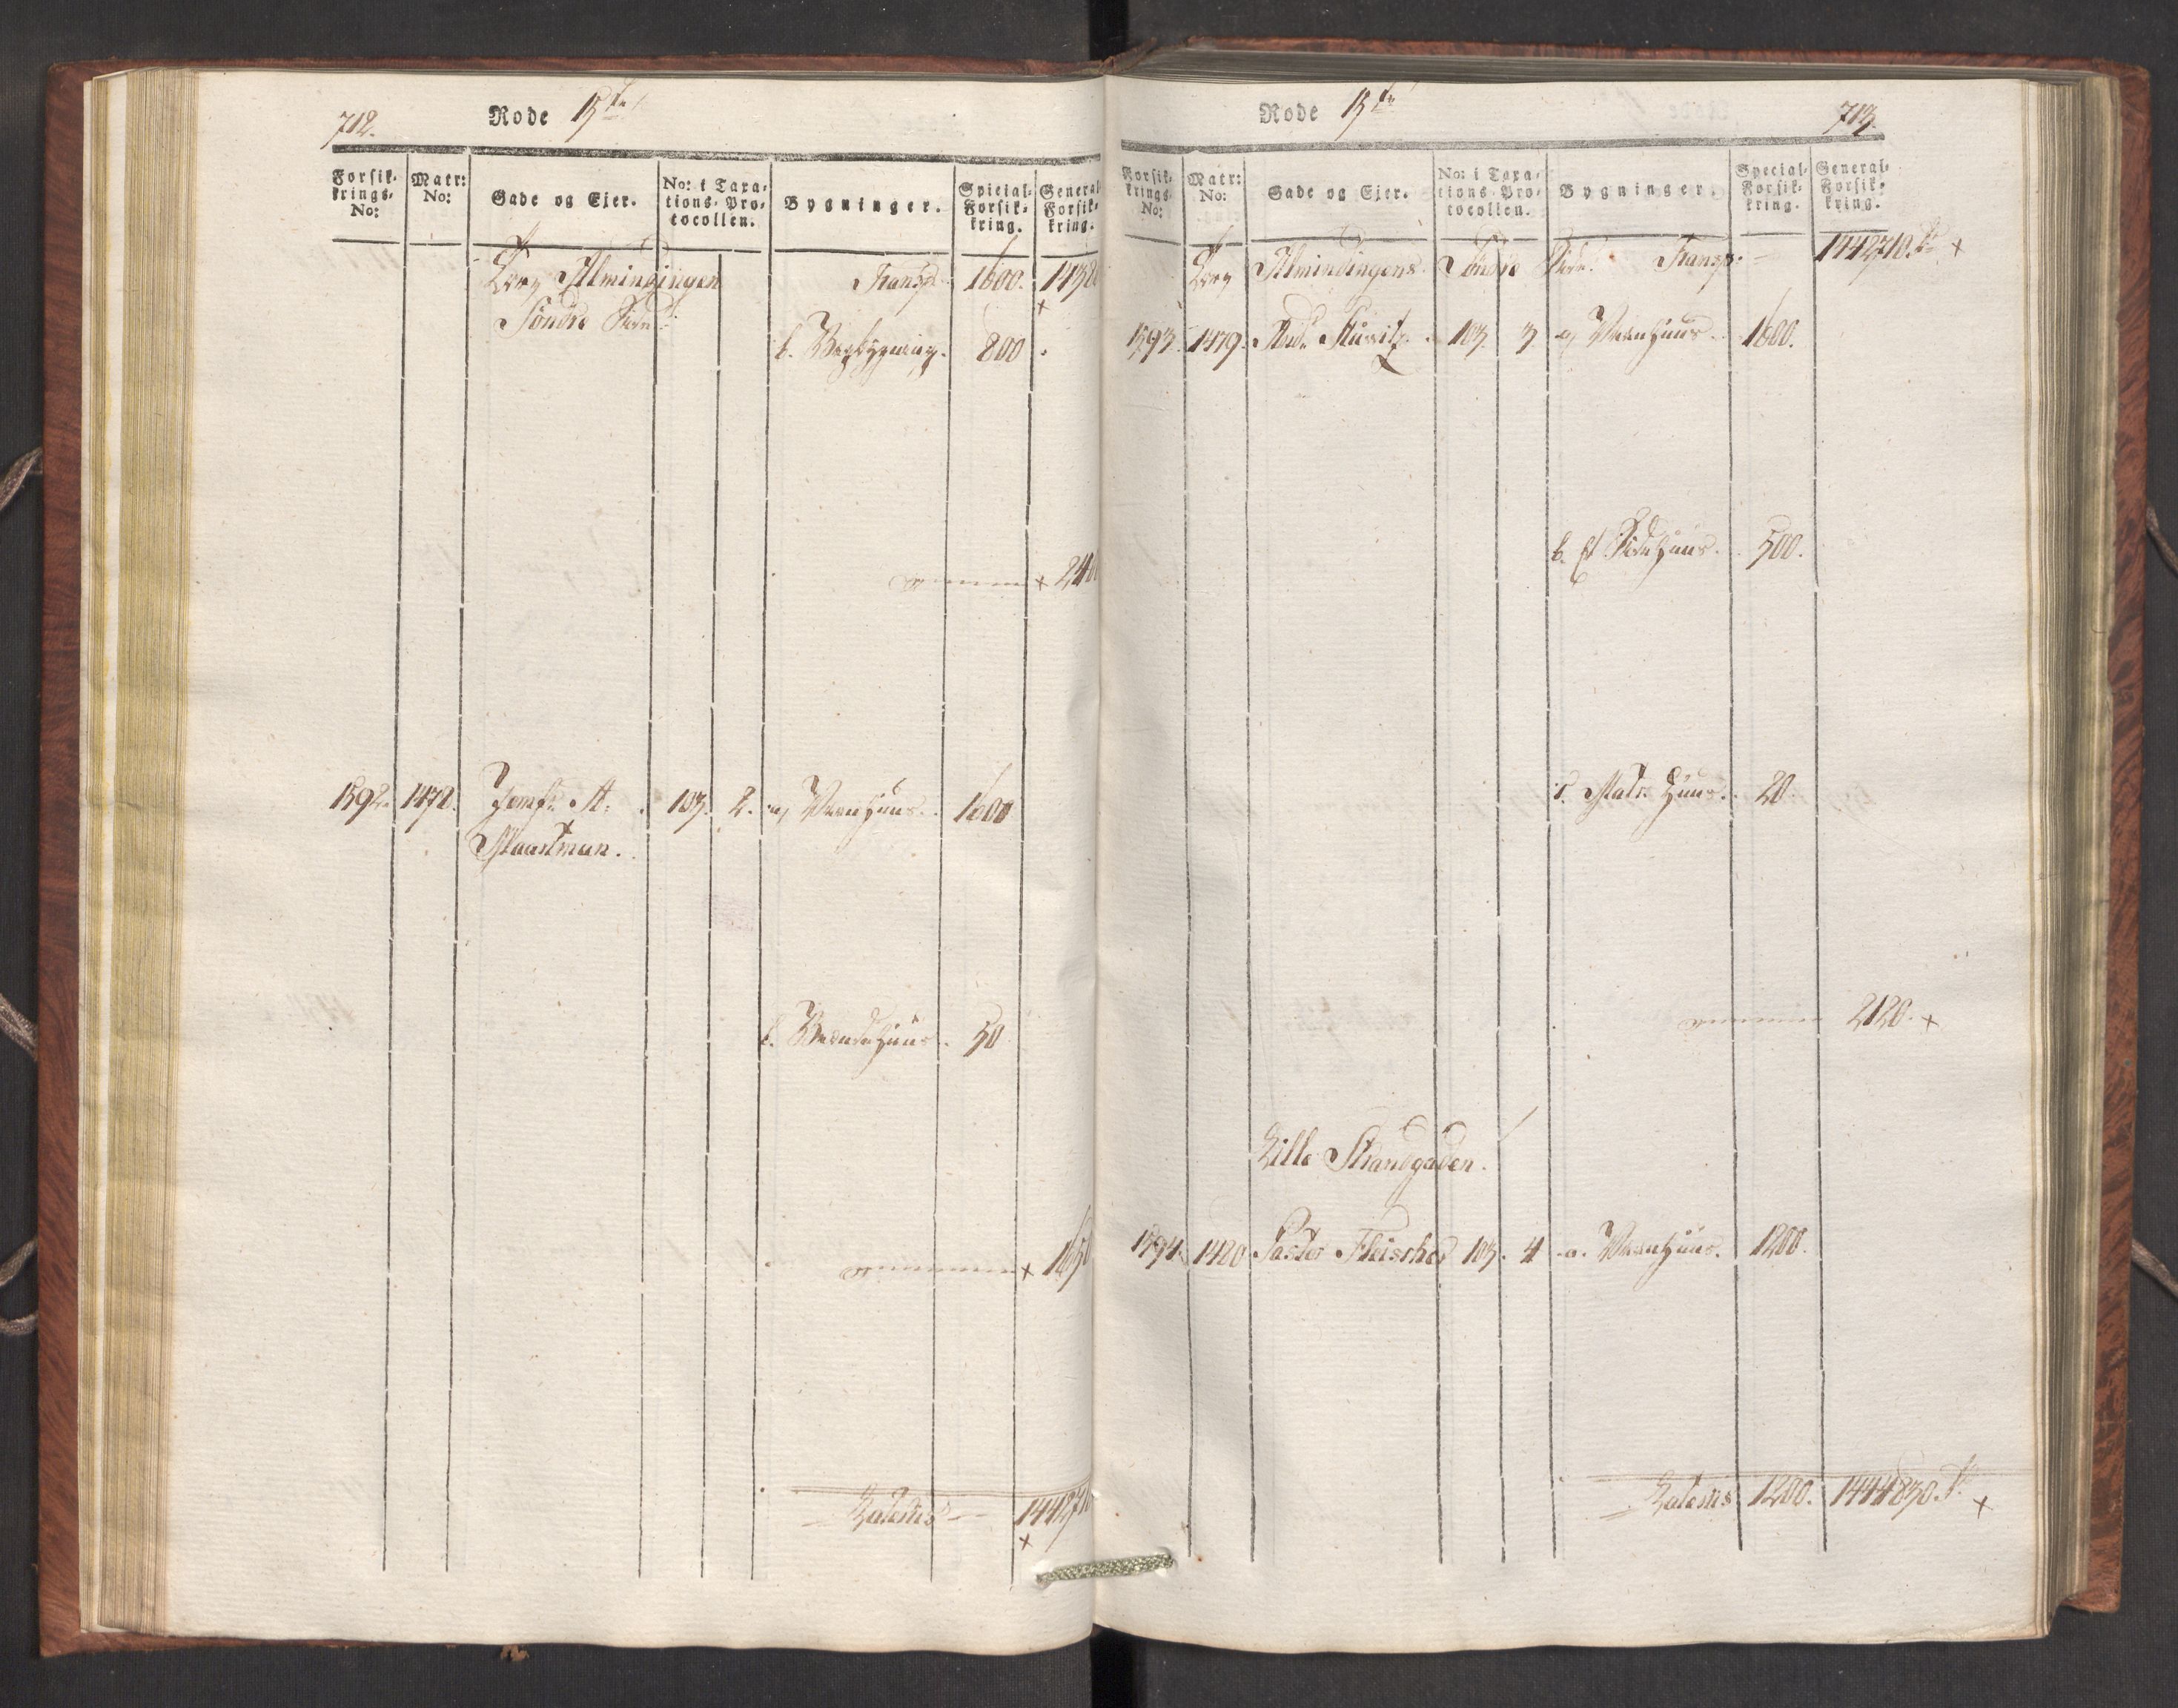 712.
Rode 15de
Forsik-
krings-
No:
Matr:
No:
Gade og Ejer.
No: i Taxa-
tions-Pro-
tocollen.
Bygninger.
Special-
Forsik-
kring.
General
Forsik-
kring.
Torv Almindingen Transp: 1600.
Söndre Side
b. 800
240
1592. 1478. Jomfr. A: 103. 2. a, Vaanhuus. 1600
b. Brændehuus. 50
1650
Lateris
713.
Rode 15de
Forsik-
krings-
No:
Matr:
No:
Gade og Ejer.
No: i Taxa-
tions-Pro-
tocollen.
Bygninger.
Special-
Forsik-
kring.
General-
Forsik-
kring.
Torv Almindingens Söndre Side. Transp: 1442710.
1593. 1479. 103 3 a, Vaanhuus. 1600.
b. Et Sidehuus. 500.
20.
2120.
Lille Strandgaden.
1594. 1480 Pastor Fleischer 103. 4 a. Vaanhuus. 1200.
Lateris 1200. 1444830.